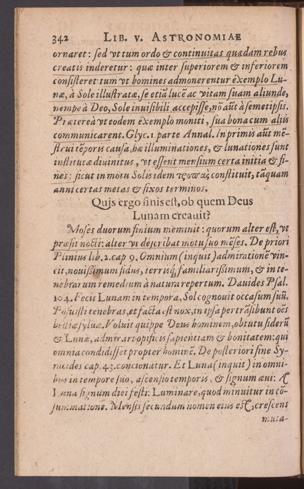 342 LIB. V. ASTRONOMIAE
ornaret: sed vt tum ordo & continuitas quædam rebus
creatis inderetur: quæ inter superiorem & inferiorem
consisteret tum vt homines admonerentur exemplo Lu-
næ, à Sole illustratæ, se etiā lucē ac vitam suam aliunde,
nempe à Deo, Sole inuisibili accepisse, nō aūt à semetipsis.
Prætereà vt eodem exemplo moniti, sua bona cum aliis
communicarent. Glyc. 1. parte Annal. In primis aūt mē-
strui tēporis causa, hæ illuminationes, & lunationes sunt
institutæ diuinitus, vt essent mensium certa initia & fi-
nes: sicut in motu Solis idem constituit, tāquam
anni certas metas & fixos terminos.
Quis ergo finis est, ob quem Deus
Lunam creauit?
Moses duorum finium meminit: quorum alter est, vt
præsit nocti: alter vt describat motu suo mēses. De priori
Plinius lib. 2. cap 9. Omnium (inquit) admirationē vin-
cit, nouissimum sidus, terrisq́; familiarissimum, & in te-
nebrarum remedium à natura repertum. Dauides Psal.
104. Fecit Lunam in tempora, Sol cognouit occasum suū.
Posuisti tenebras, et facta est nox, in ipsa pertrāsibunt oēs
bestiæ syluæ. Voluit quippe Deus hominem, obtutu siderū
& Lunæ, admirari opificis sapientiam & bonitatem: qui
omnia condidisset propter hominē. De posteriori fine Sy-
racides cap. 43. concionatur. Et Luna (inquit) in omni-
bus in tempore suo, ascensio temporis, & signum æui: A
Luna signum diei festi: Luminare, quod minuitur in cō-
summatione. Mensis secundum nomen eius est, crescens
muta-